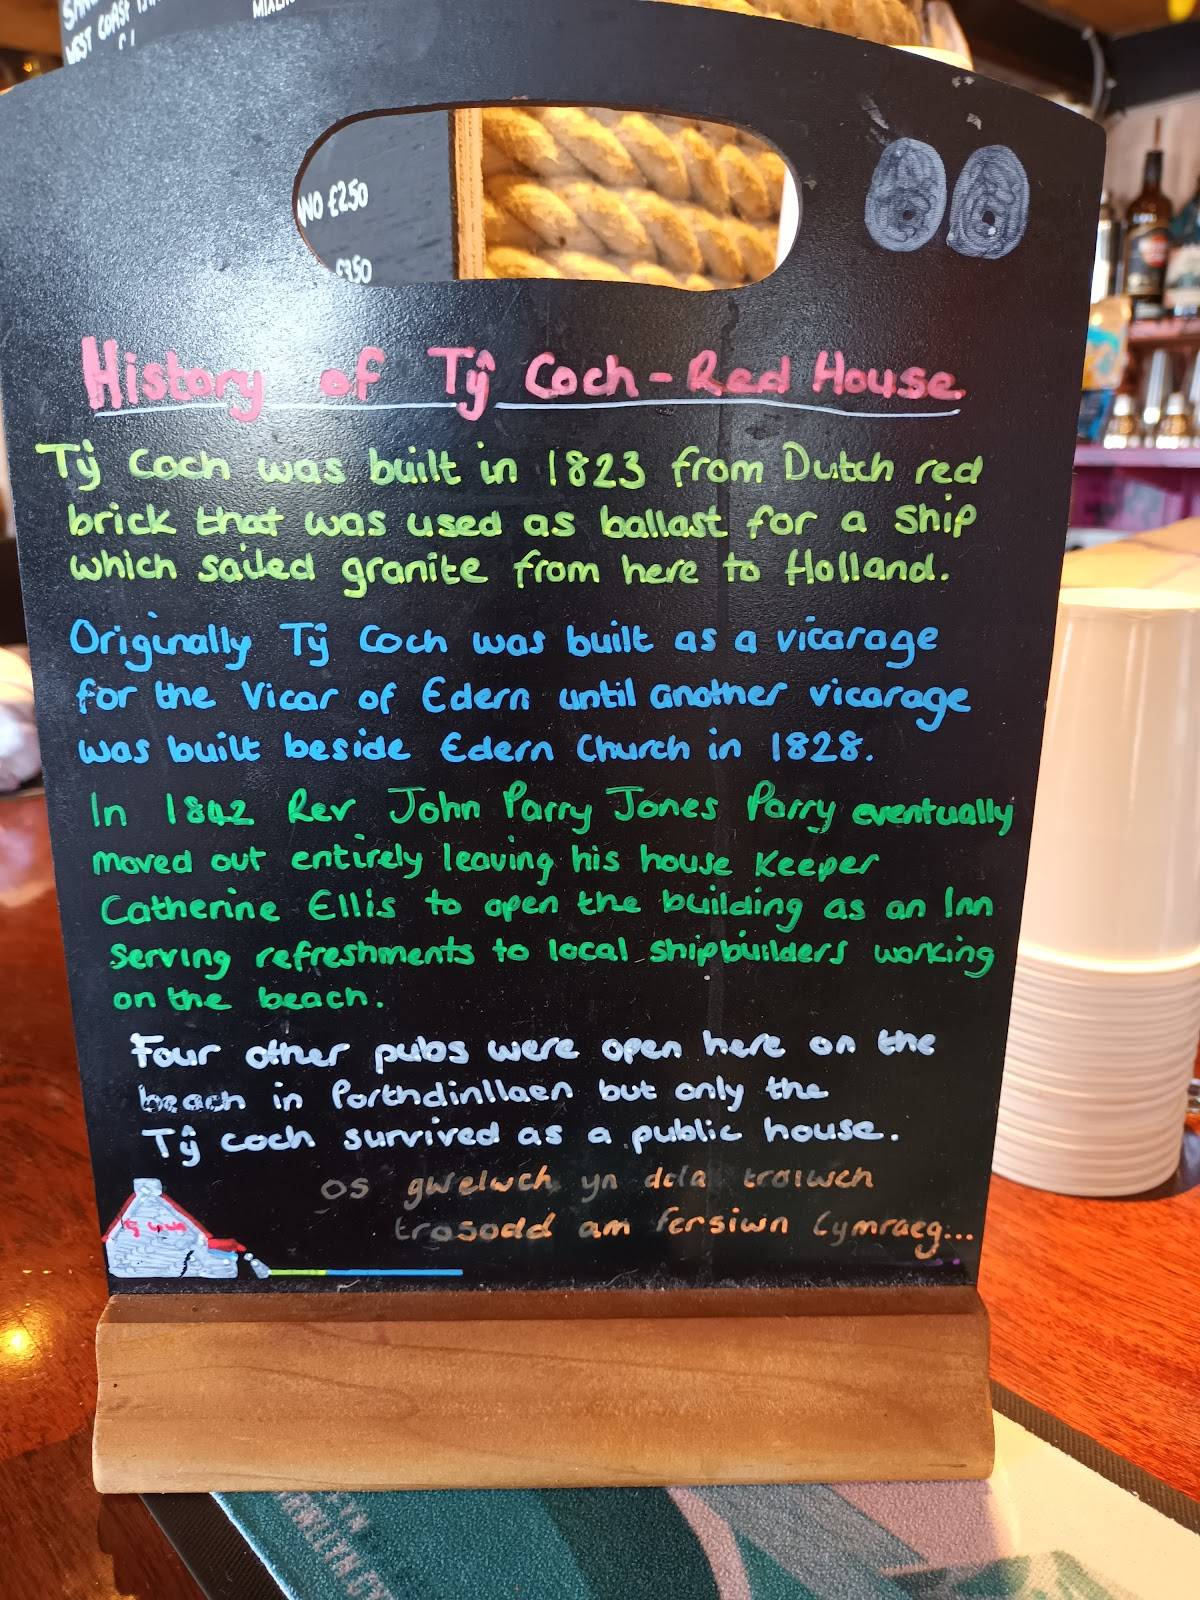 WEST COAST
MIXER
NO £250
£350
History of Tŷ Coch - Red House
Tŷ Coch was built in 1823 from Dutch red
brick that was used as ballast for a ship
which sailed granite from here to Holland.
Originally Tŷ Coch was built as a vicarage
for the Vicar of Edern until another vicarage
was built beside Edern Church in 1828.
In 1842 Rev John Parry Jones Parry eventually
moved out entirely leaving his house keeper
Catherine Ellis to open the building as an Inn
serving refreshments to local shipbuilders working
on the beach.
Four other pubs were open here on the
beach in Porthdinllaen but only the
Tŷ coch survived as a public house.
os gwelwch yn dda troiwch
trosodd am fersiwn Cymraeg...